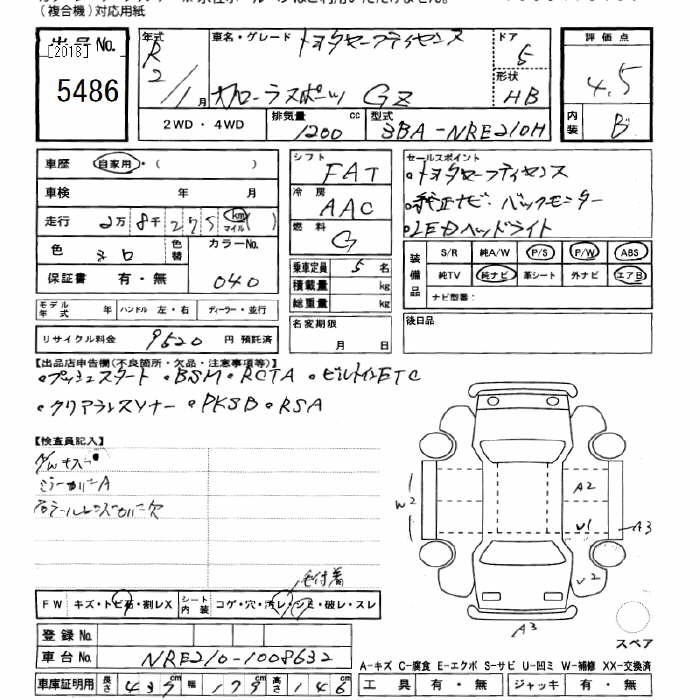 (複合機)対応用紙
出品No.
[2018]
5486
年式
R2/1月
車名・グレード
トヨタセーフティセンス
カローラスポーツ GZ
ドア
5
形状
HB
評価点
4.5
内装
B
2WD・4WD
排気量
1200 cc
型式
3BA-NRE210H
車歴 自家用・( )
車検 年 月
走行 2万8千275 (km マイル)( )
色 シロ 色替 カラーNo.
保証書 有・無 040
モデル年式 年 ハンドル 左・右 ディーラー・並行
リサイクル料金 9520 円 預託済
シフト FAT
冷房 AAC
燃料 G
乗車定員 5 名
積載量 kg
総重量 kg
名変期限
月 日
セールスポイント
・トヨタセーフティセンス
・純正ナビ・バックモニター
・LEDヘッドライト
装備品
S/R 純A/W P/S P/W ABS
純TV 純ナビ 革シート 外ナビ エアB
ナビ型番:
後日品
【出品店申告欄(不良箇所・欠品・注意事項等)】
・プッシュスタート ・BSM・RCTA ・ビルトインETC
・クリアランスソナー ・PKSB・RSA
【検査員記入】
ミラーカバーA
右テールレンズカバー欠
W2
A2
W1
A3
W2
A3
スペア
毛付着
FW キズ・トビ石・割レX シート内装 コゲ・穴・汚レ・シミ・破レ・スレ
登録No.
車台No. NRE210-1008632
車庫証明用 長さ 437cm 幅 179cm 高さ 146cm
A-キズ C-腐食 E-エクボ S-サビ U-凹ミ W-補修 XX-交換済
工具 有・無 ジャッキ 有・無